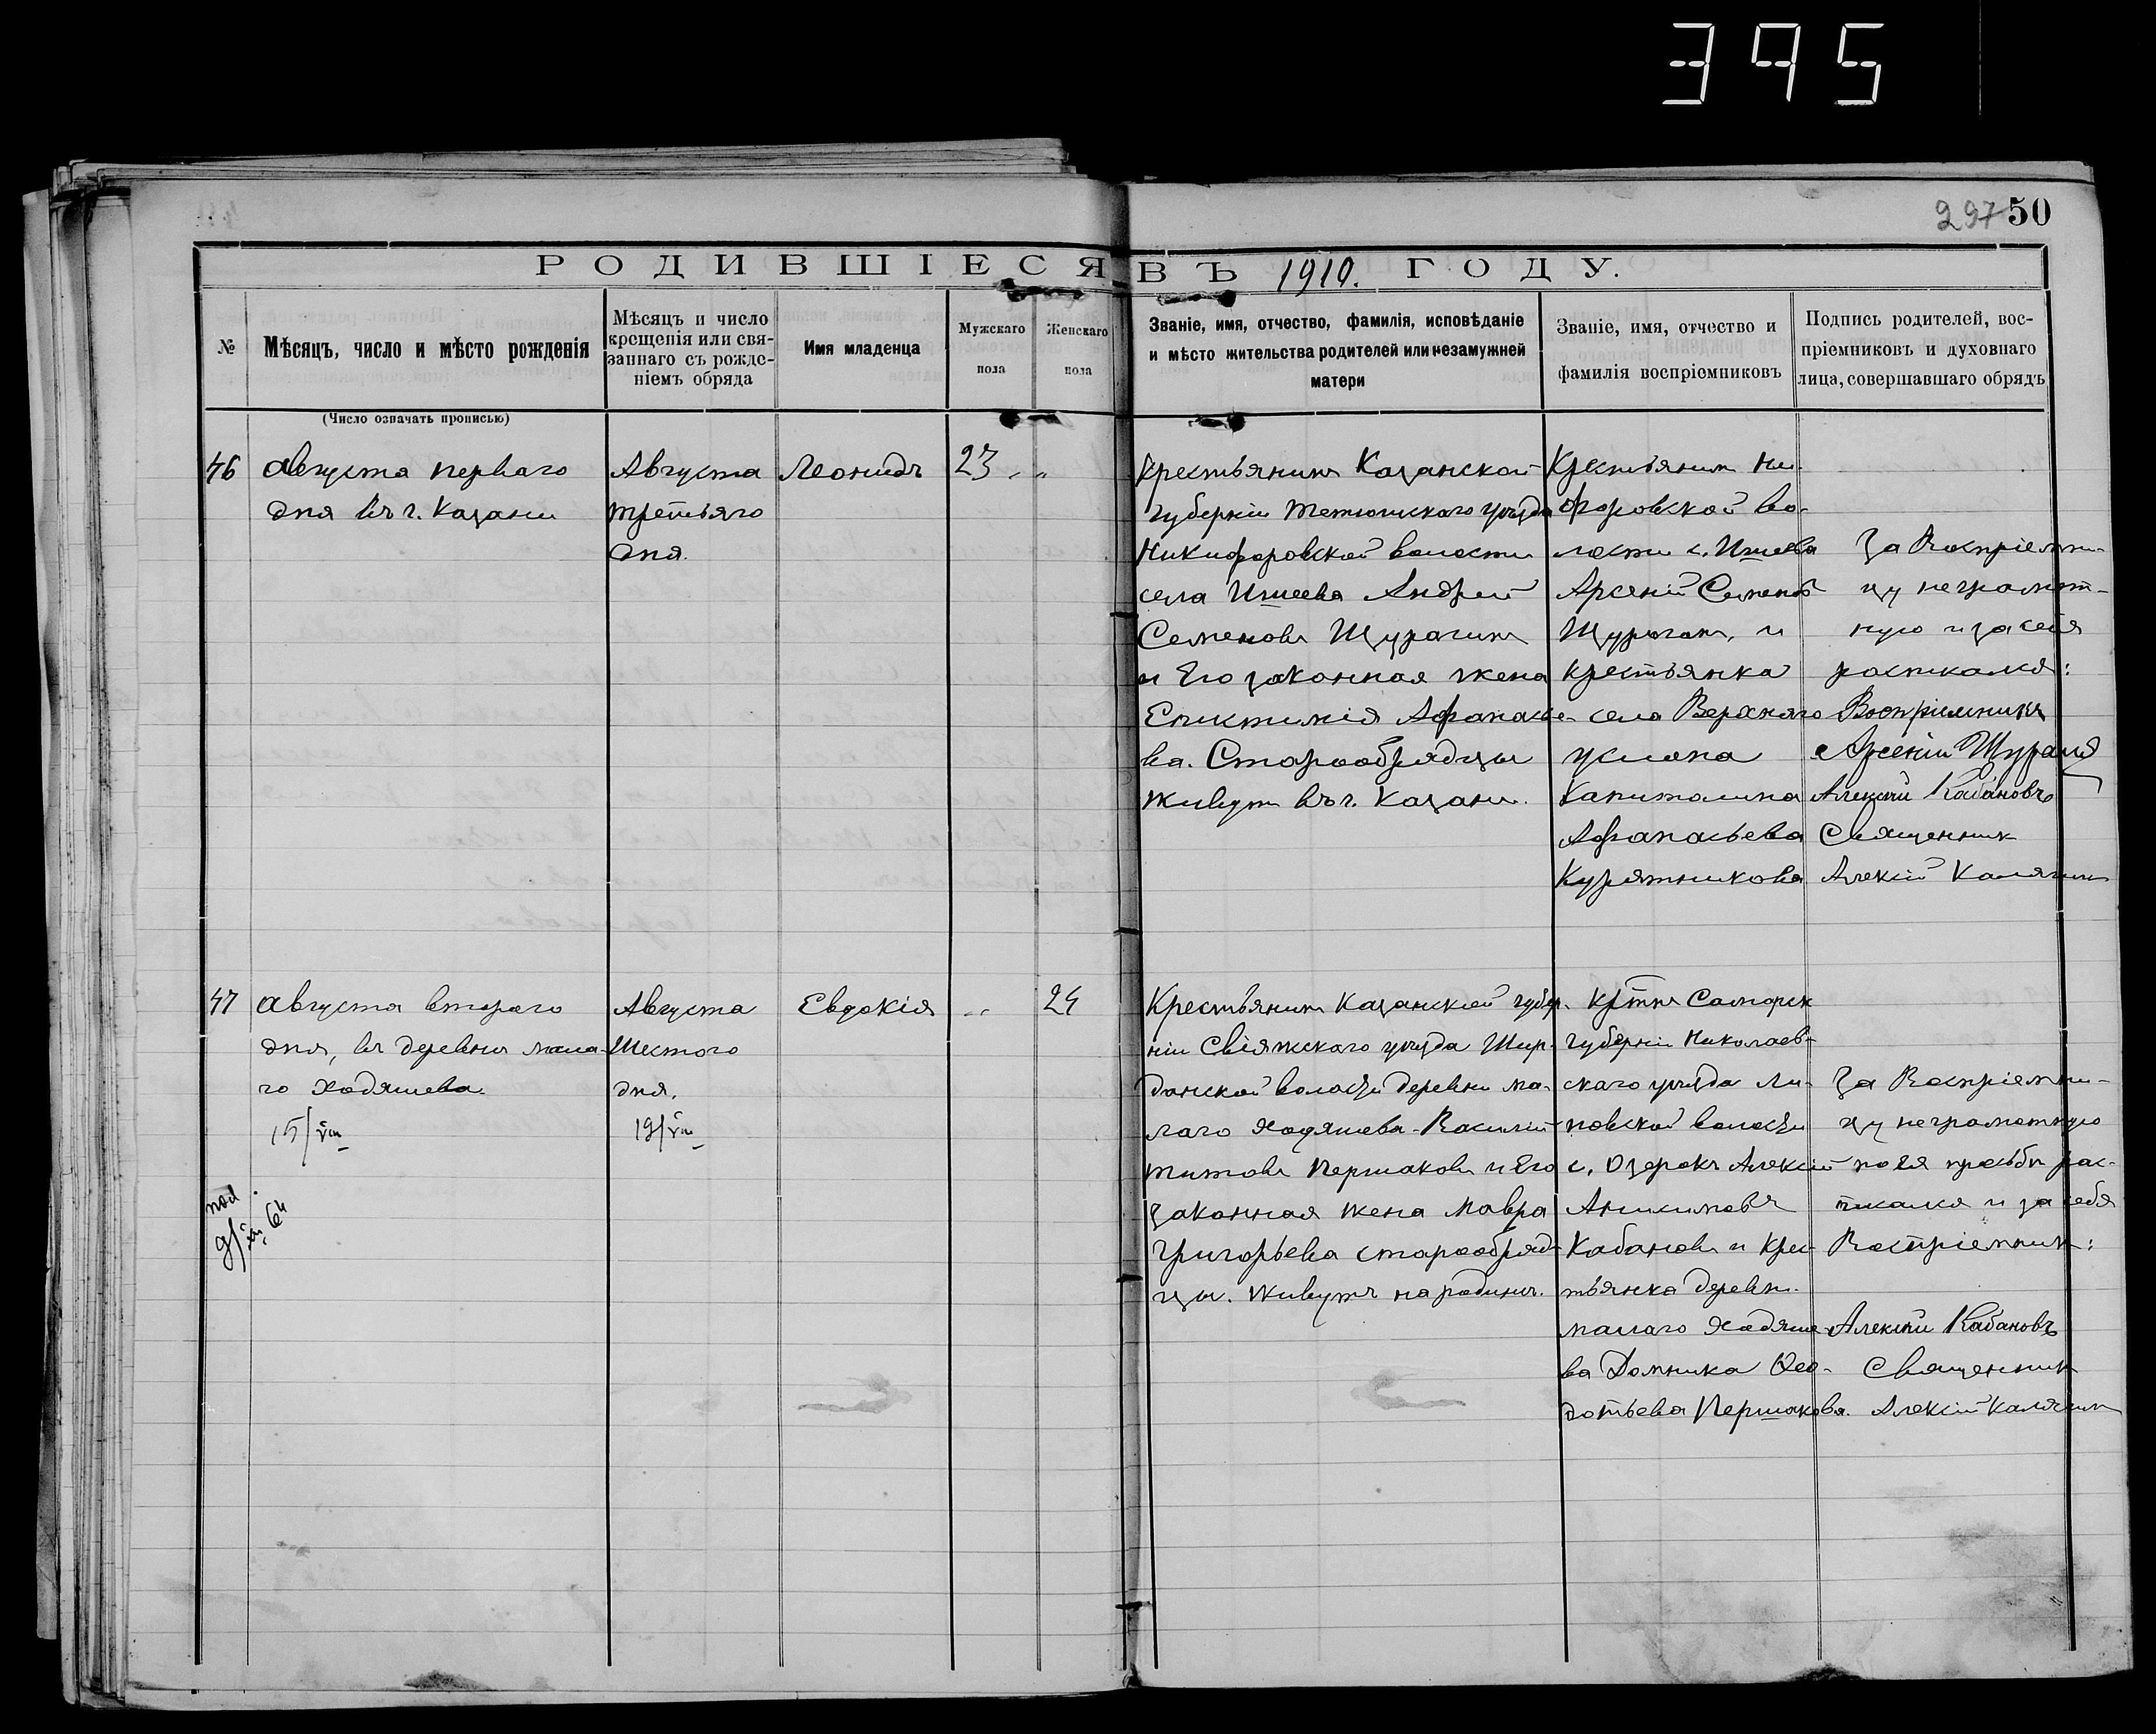 395
297 50
РОДИВШІЕСЯ ВЪ 1910. ГОДУ.
№
Мѣсяцъ, число и мѣсто рожденія
Мѣсяцъ и число
крещенія или свя-
заннаго съ рожде-
ніемъ обряда
Имя младенца
Мужскаго
пола
Женскаго
пола
Званіе, имя, отчество, фамилія, исповѣданіе
и мѣсто жительства родителей или незамужней
матери
Званіе, имя, отчество и
фамилія воспріемниковъ
Подпись родителей, вос-
пріемниковъ и духовнаго
лица, совершавшаго обрядъ
(Число означать прописью)
46
Августа перваго
дня въ г. Казани
Августа
третьяго
дня.
Леонидъ
23 „ „
Крестьянинъ Казанской
губерніи Тетюшскаго уѣзда
Никифоровской волости
села Ишеева Андрей
Семеновъ Щурагинъ
и Его законная жена
Епистимія Афанасье-
ва. Старообрядцы
живутъ въ г. Казани.
Крестьянинъ Ни-
форовской во-
лости с. Ишеева
Арсеній Семеновъ
и
крестьянка
села Верхняго
Услона
Капитолина
Афанасьева
Курятникова
За Воспріемни-
цу неграмот-
ную и за себя
росписался:
Воспріемникъ
Арсеній
Алексѣй Кабановъ
Священник
Алексій Калягинъ
47
Августа втораго
дня, въ деревни мала-
го Ходяшева.
15/VIII
Августа
Шестого
дня.
19/VIII
Евдокія
„
24
Крестьянинъ Казанской губер-
ніи Свіяжскаго уѣзда Шир-
данской волости деревни ма-
лаго Ходяшева Василій
Титовъ Першаковъ и Его
законная жена Мавра
Григорьева старообряд-
цы. живутъ на родинѣ.
Самарск
губерніи Николаев-
скаго уѣзда Ли-
повской волости
с. Озерокъ Алексій
Аникимовъ
Кабановъ и Крес-
тьянка деревни
малаго Ходяше-
ва Домника Ѳео-
дотьева Першакова.
За Воспріемни-
цу неграмотную
по Ея просьбѣ рас-
писался и за себя
Воспріемник:
Алексѣй Кабановъ
Священник
Алексій Калягинъ